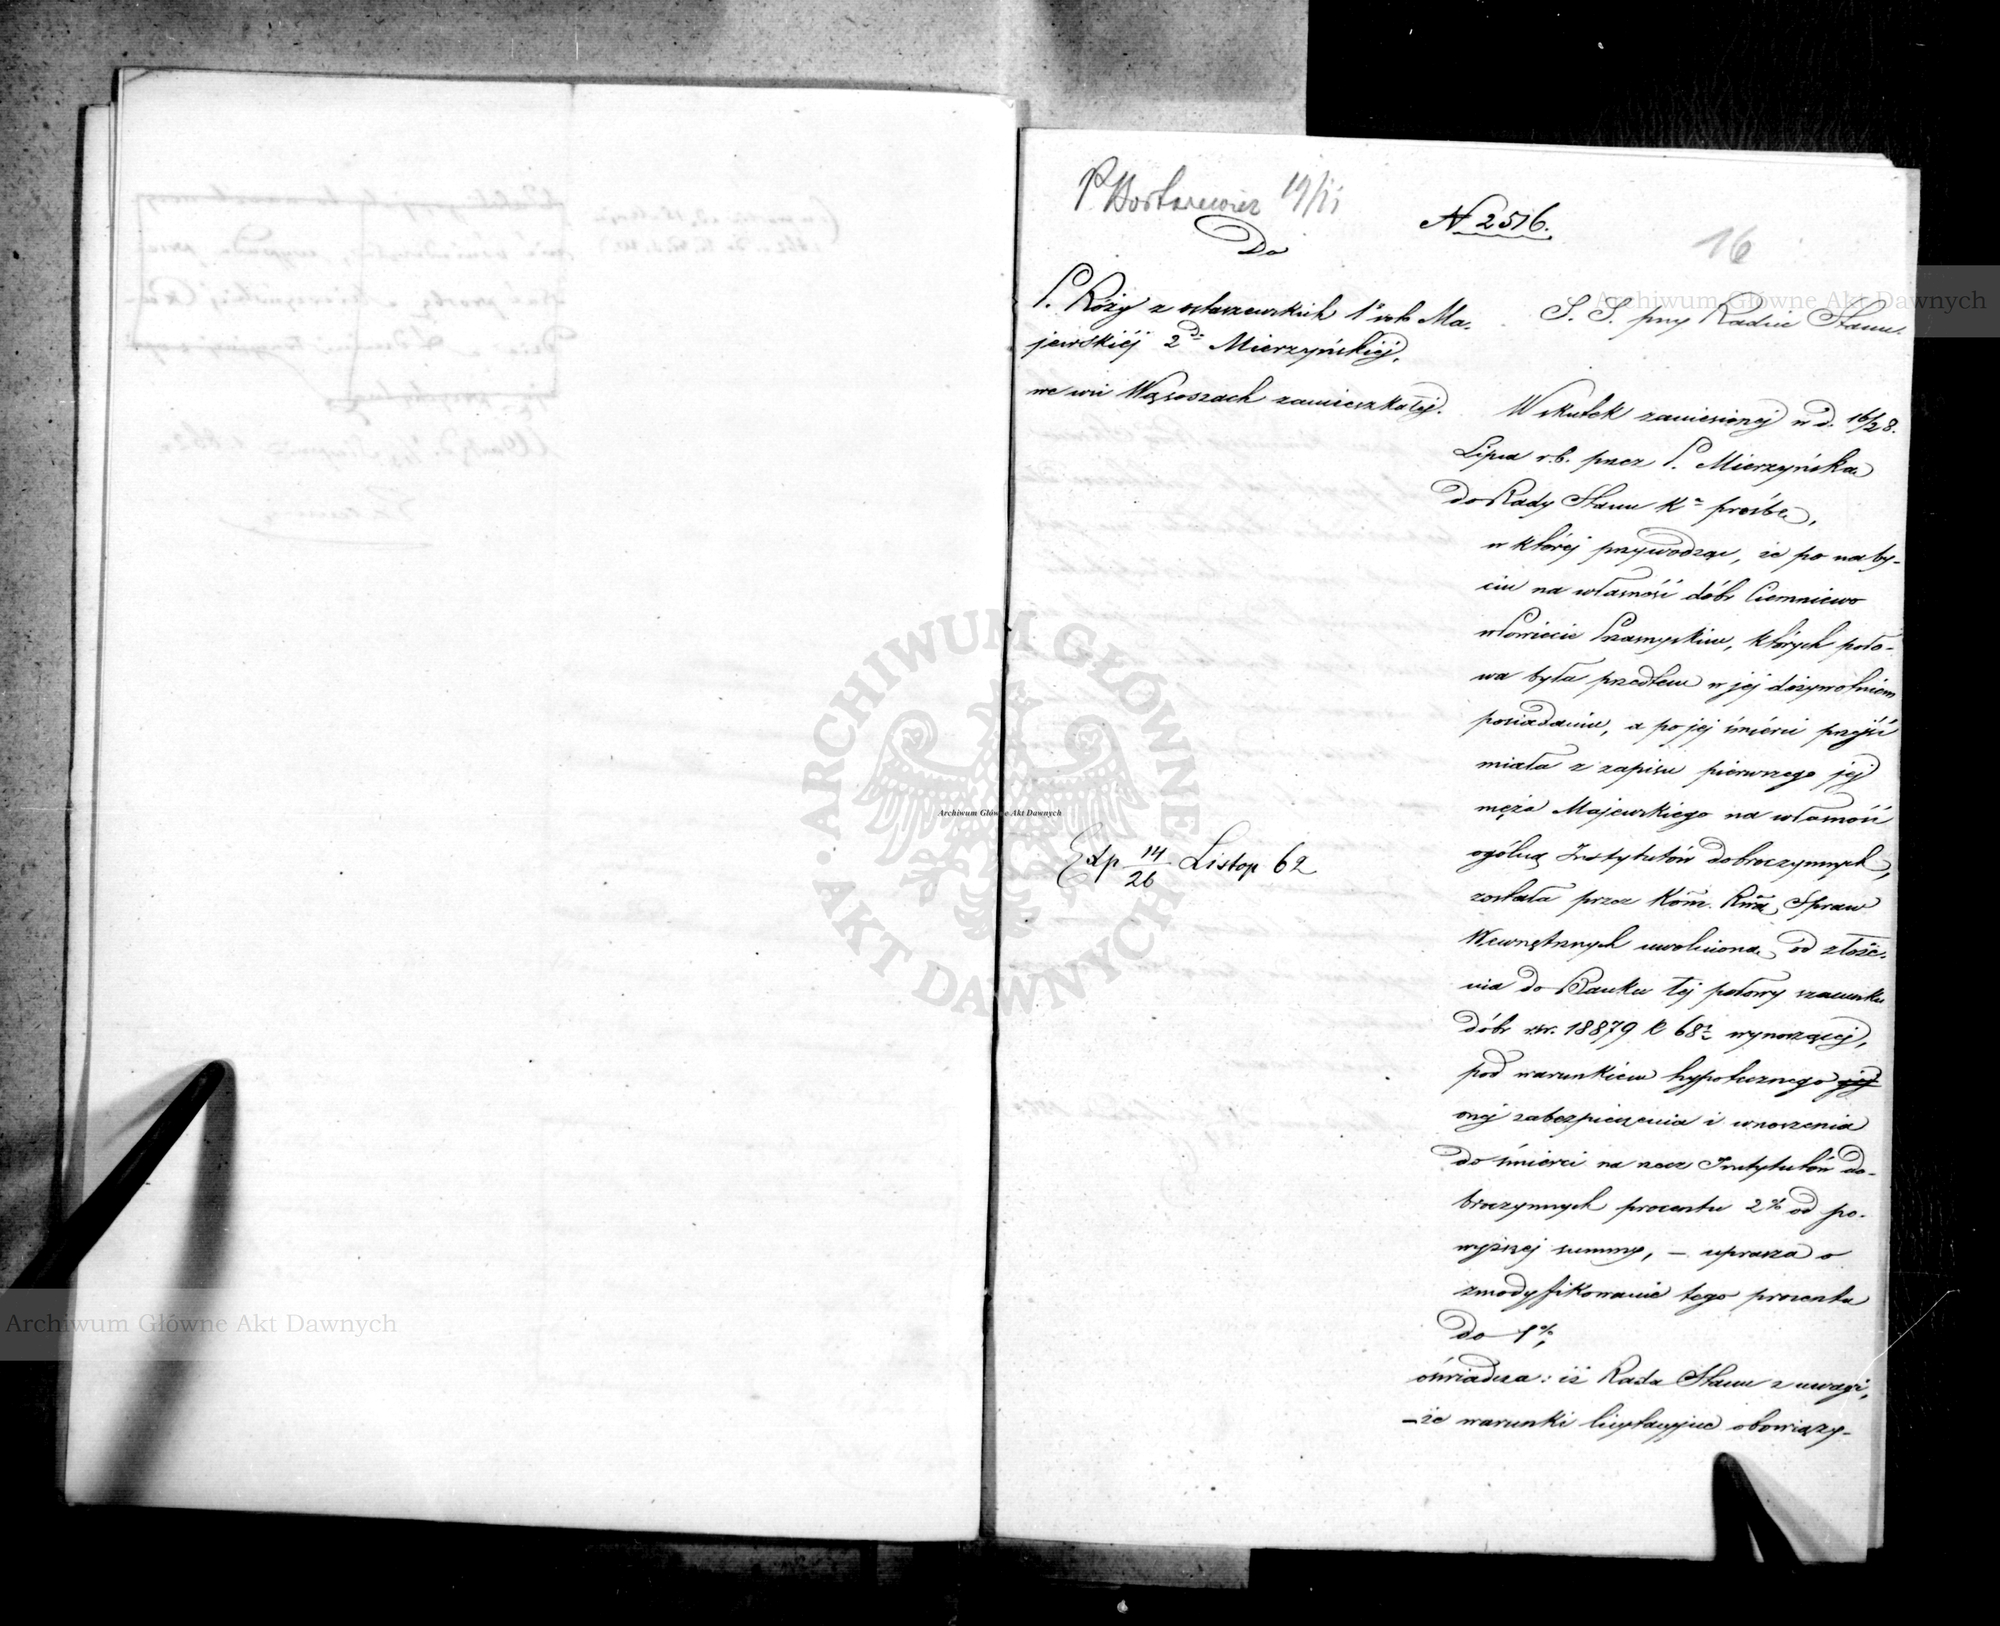 19/11
N 2516.
16
Do
P. Róży z Ostaszewskich 1º voto Ma-
jewskiéj 2do Mierzyńskiéj,
we wsi Wąsoszach zamieszkałéj.
S. S. przy Radzie Stanu.
Wskutek zaniesionej w d. 16/28.
Lipca r.b. przez P. Mierzyńską
do Rady Stanu Kr prośbę,
w której przywodząc, że po naby-
ciu na własność dóbr Ciemniewo
w Powiecie Przasnyskim, których poło-
wa była przedtem w jej dożywotniem
posiadaniu, a po jej śmierci przejść
miała z zapisu pierwszego jej
męża Majewskiego na własność
ogólną Instytutów dobroczynnych,
została przez Kom. Rzą. Spraw
Wewnętrznych uwolnioną od złoże-
nia do Banku tej połowy szacunku
dóbr rsr. 18879 k 68½ wynoszącej,
pod warunkiem hypotecznego jej
onej zabezpieczenia i wnoszenia
do śmierci na rzecz Instytutów do-
broczynnych procentu 2% od po-
wyższej summy, – uprasza o
zmodyfikowanie tego procentu
do 1%,
oświadcza: iż Rada Stanu z uwagi,
– że warunki licytacyjne obowiązy-
Exp 14/26 Listop 62
Archiwum Główne Akt Dawnych
Archiwum Główne Akt Dawnych
Archiwum Główne Akt Dawnych
ARCHIWUM GŁÓWNE
AKT DAWNYCH